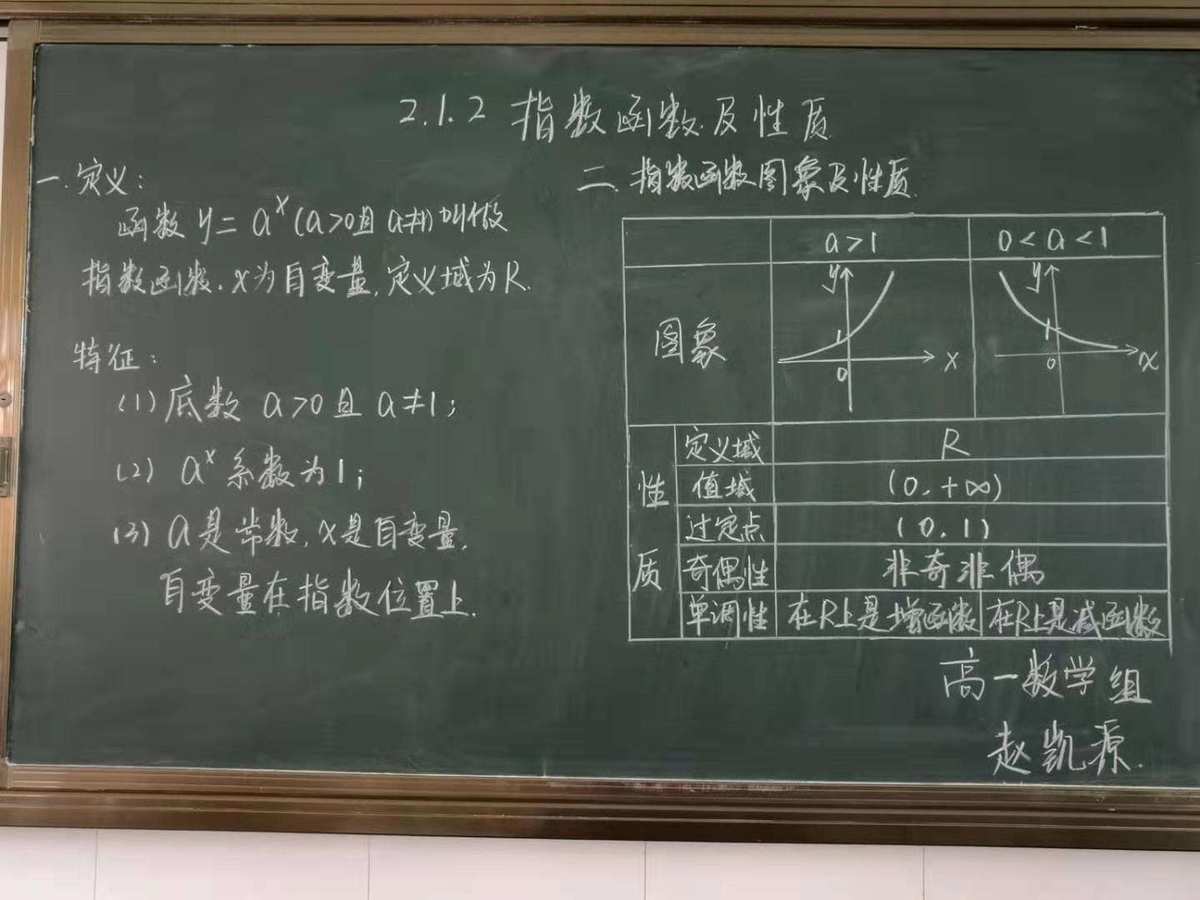 2.1.2 指数函数及性质
一.定义:
函数 y=aˣ(a>0且a≠1)叫做
指数函数.x为自变量,定义域为R.
特征:
(1)底数 a>0且a≠1;
(2) aˣ系数为1;
(3) a是常数,x是自变量,
自变量在指数位置上.
二.指数函数图象及性质
a>1 0<a<1
图象 y 1 0 x y 1 0 x
性质
定义域 R
值域 (0,+∞)
过定点 (0,1)
奇偶性 非奇非偶
单调性 在R上是增函数 在R上是减函数
高一数学组
赵凯源.